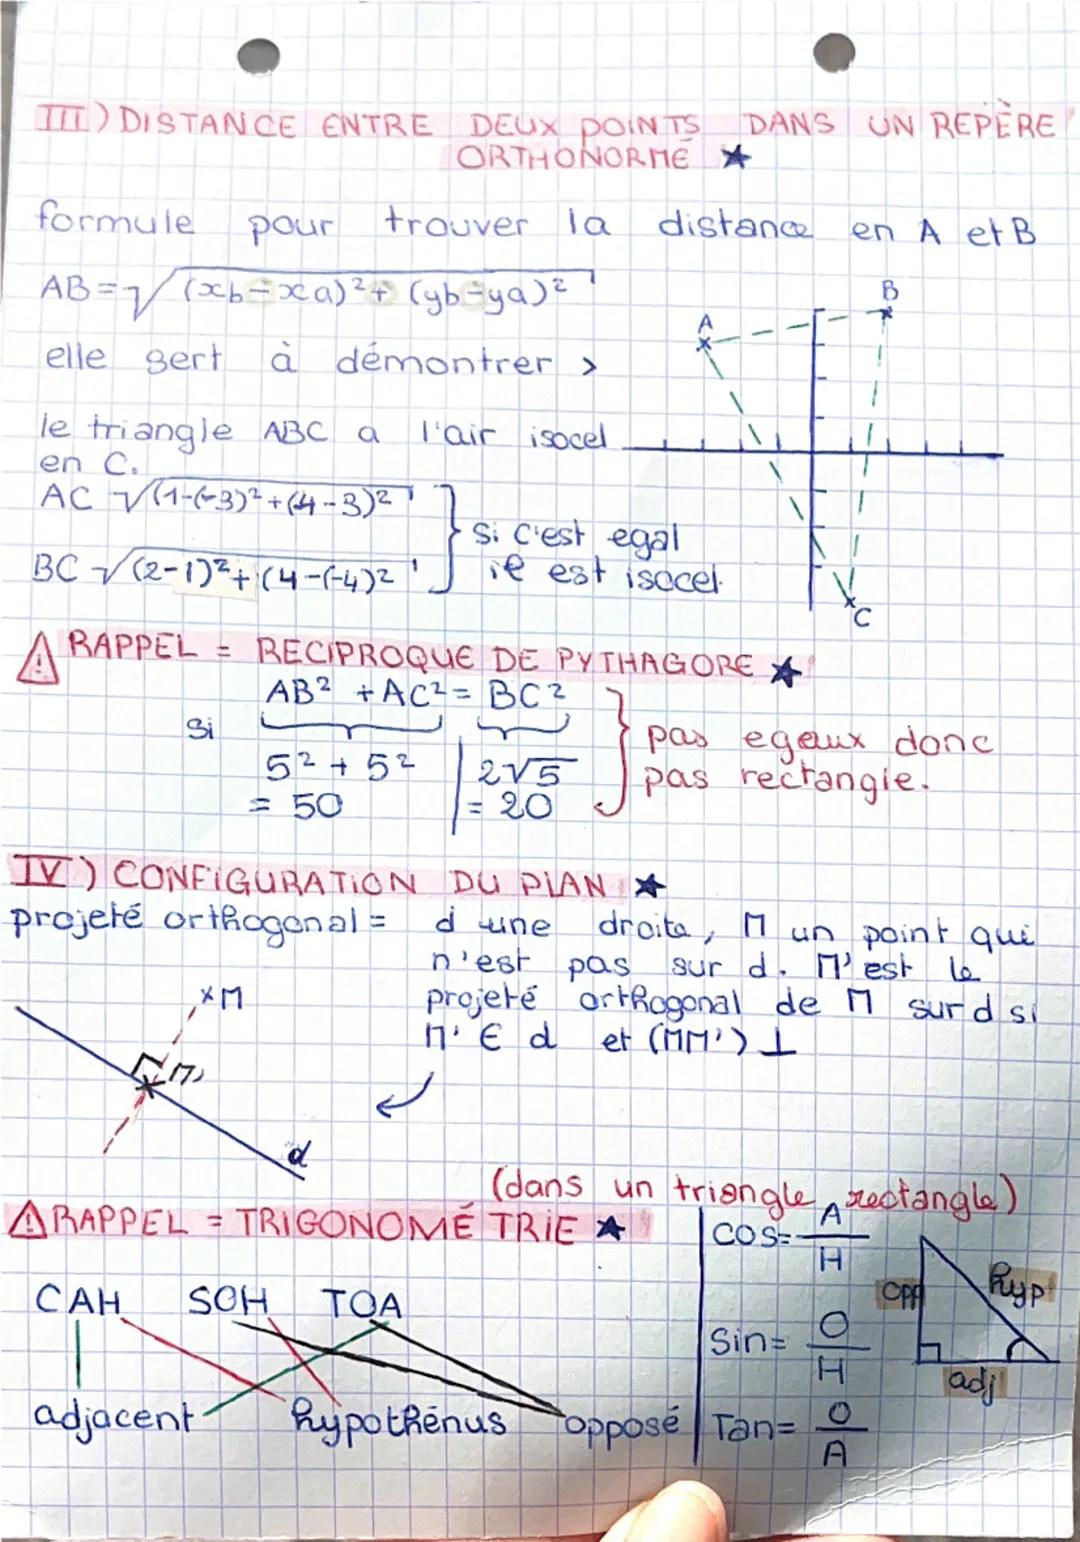 III) DISTANCE ENTRE DEUX POINTS DANS UN REPÈRE
ORTHONORMÉ ★
formule pour trouver la distance en A et B
AB = √(xb - xa)² + (yb - ya)²
elle sert à démontrer >
le triangle ABC a l'air isocel
en C.
AC √(1-(-3)² + (4-3)²
BC √(2-1)² + (4-(-4)²
si c'est egal
il est isocel.
A
B
C
⚠ RAPPEL = RECIPROQUE DE PYTHAGORE ★
si AB² + AC² = BC²
5² + 5² | 2√5
= 50 | = 20
pas egaux donc
pas rectangle.
IV) CONFIGURATION DU PLAN ★
projeté orthogonal = d une droite, M un point qui
n'est pas sur d. M' est le
projeté orthogonal de M sur d si
M' ∈ d et (MM') ⊥
×M
M'
d
(dans un triangle rectangle)
⚠ RAPPEL = TRIGONOMÉTRIE ★
CAH SOH TOA
adjacent hypothénus opposé
cos = A/H
Sin = O/H
Tan = O/A
opp
hyp
adj